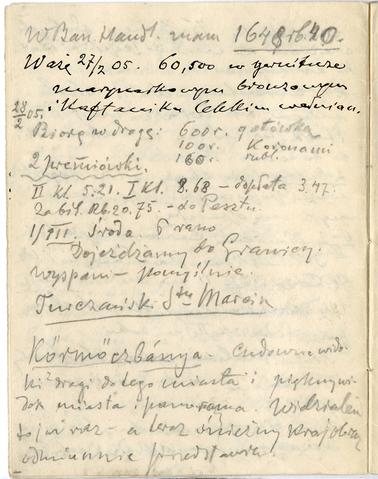 W Ban. Handl. mam 1648 rb. 40.
Ważę 27/2 05. 60,500 w garniturze
marynarkowym bronzowym
i kaftaniku lekkim
28/2 05.
Biorę w drogę: 600 r. gotówką
100 r. Koronami
rubl.
II kl. 5.21. I Kl. 8.68 – dopłata 3.47.
Za bil. Rb. 20.75. – do Pesztu
1/III. Środa. 6 rano
Dojeżdżamy do Granicy.
wyspani – pomyślnie.
Turczański Sty Marcin
Körmöczbánya. Cudowne wido-
ki z drogi do tego miasta i piękny wi-
dok miasta i panorama. Widziałem
to już raz – a teraz śnieżny krajobraz
odmiennie przedstawia.